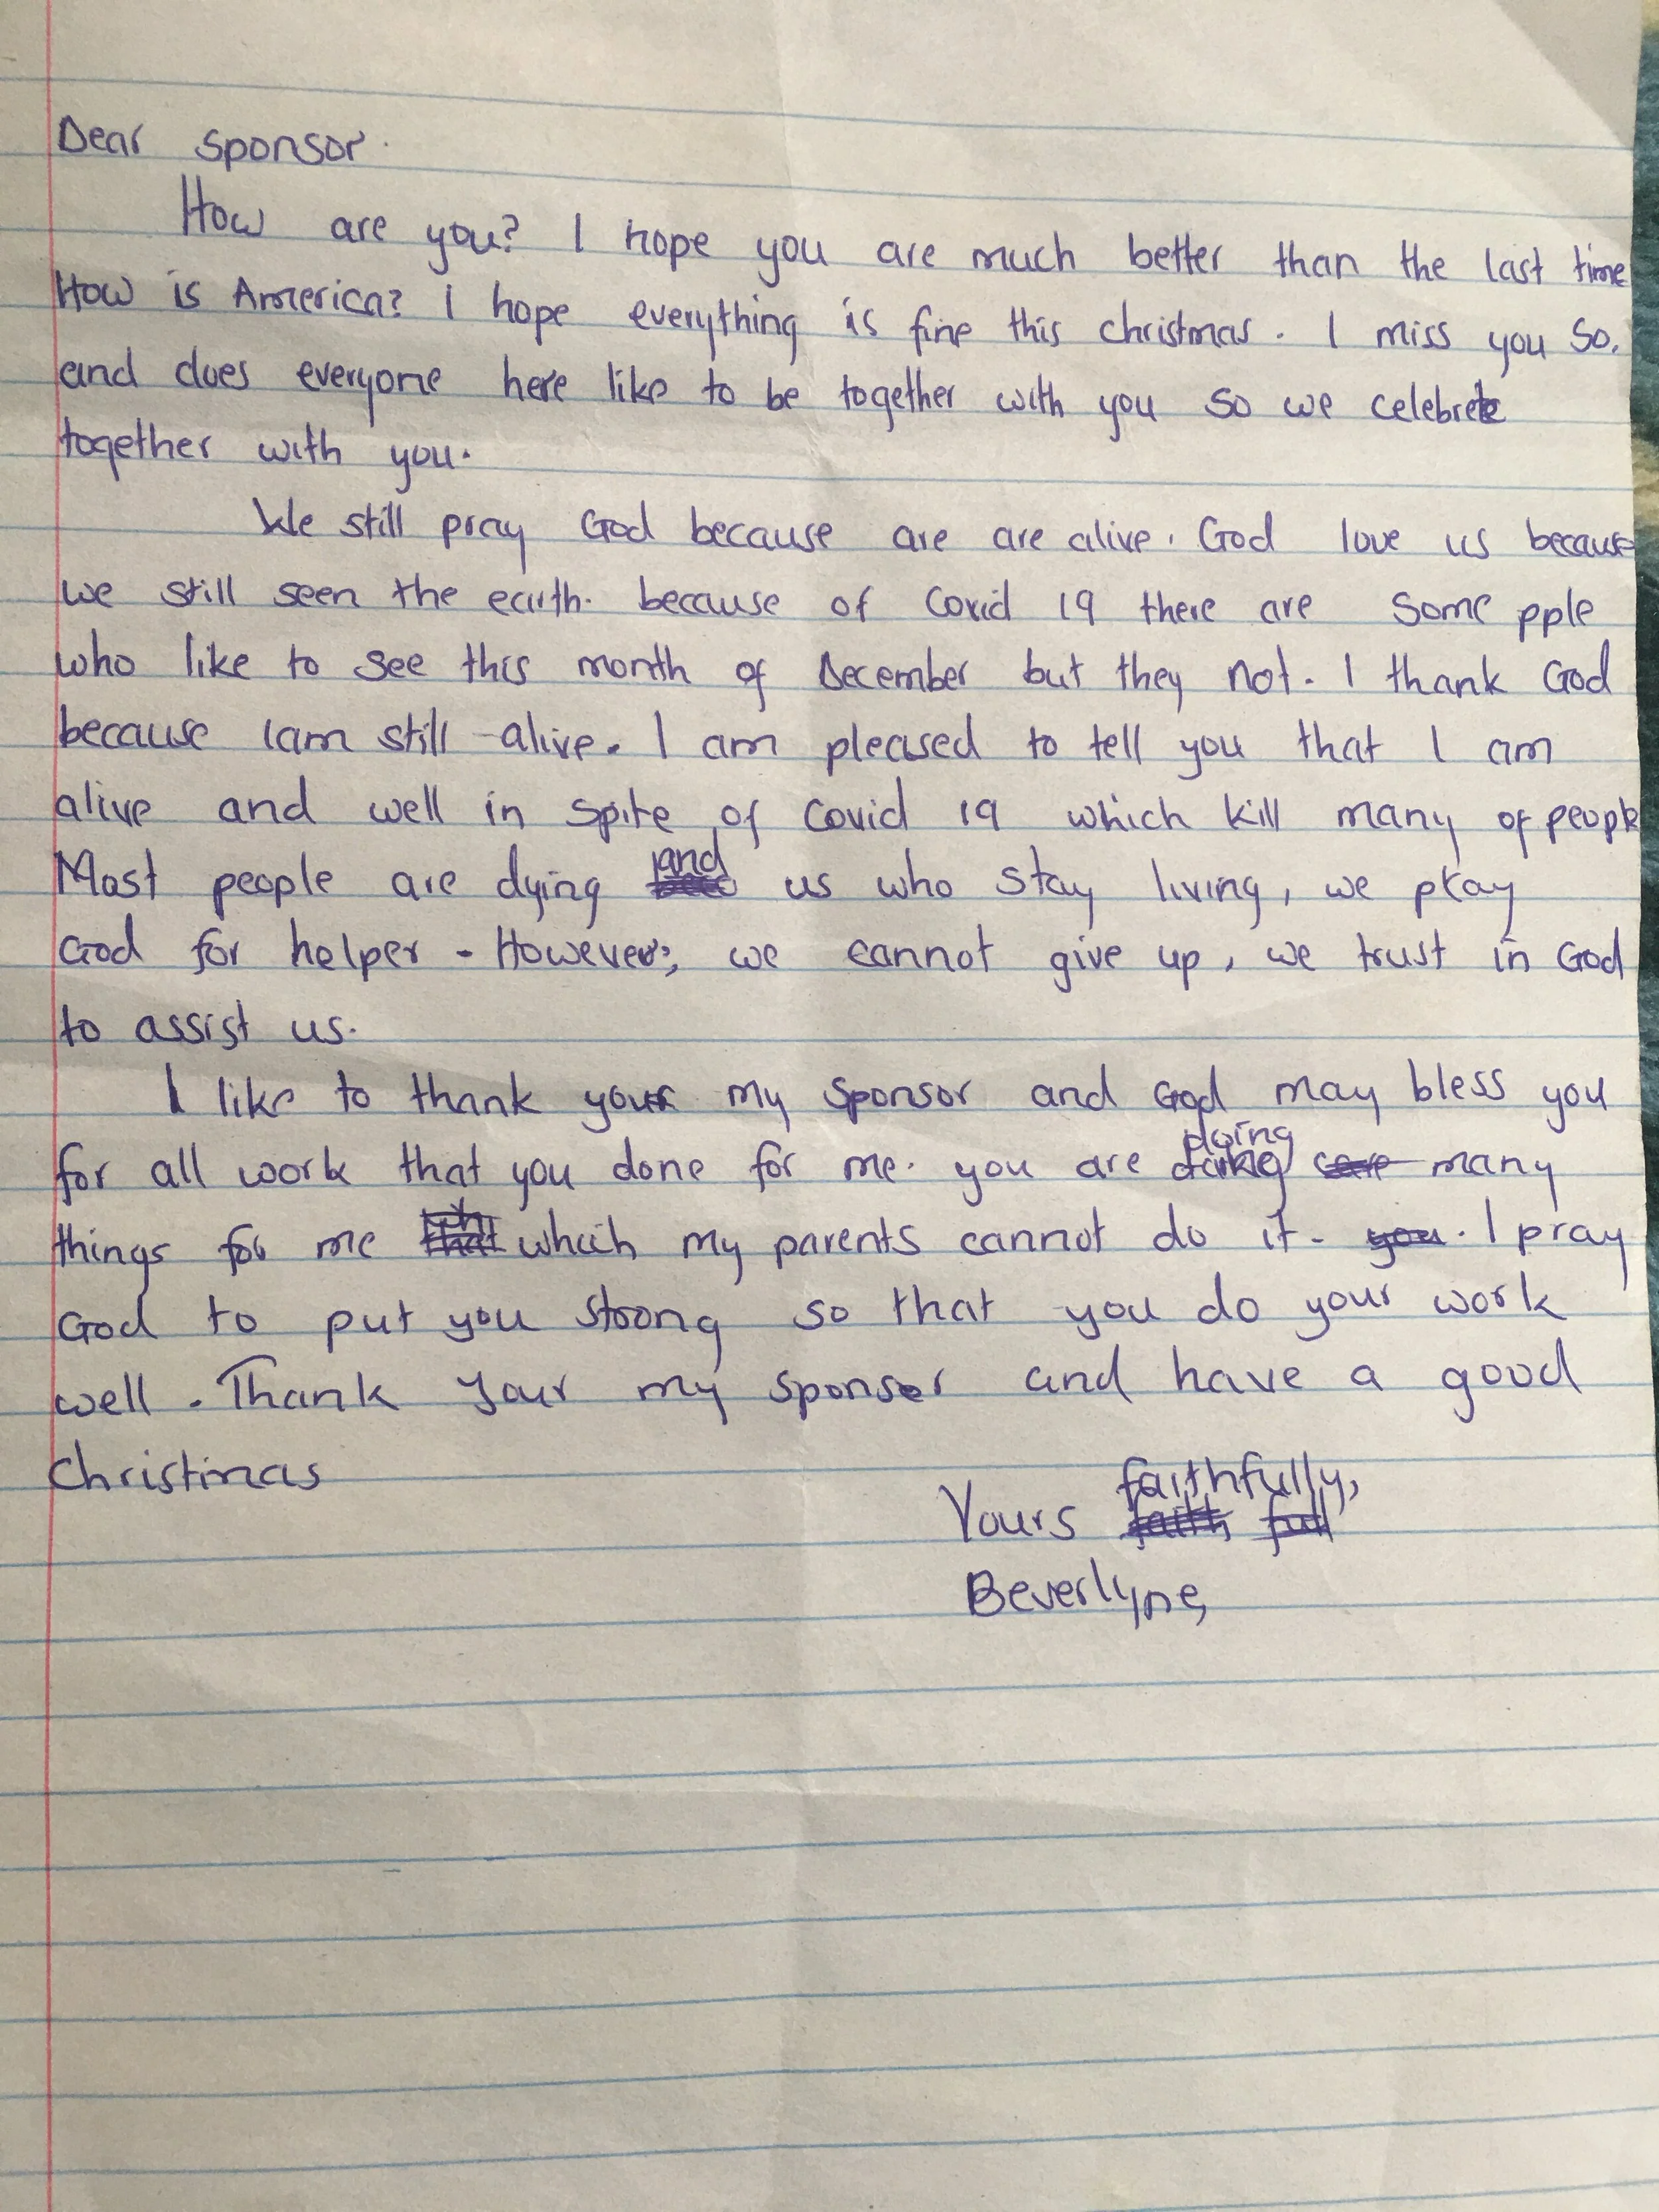 Dear sponsor.
How are you? I hope you are much better than the last time
How is America? I hope everything is fine this christmas. I miss you so.
and does everyone here like to be together with you so we celebrete
together with you.
We still pray God because are are alive. God love us because
we still seen the earth. because of Covid 19 there are some pple
who like to see this month of December but they not. I thank God
because Iam still alive. I am pleased to tell you that I am
alive and well in spite of Covid 19 which kill many of people
Most people are dying and us who stay living, we pray
God for helper - However, we cannot give up, we trust in God
to assist us.
I like to thank your my sponsor and God may bless you
for all work that you done for me. you are doing many
things for me which my parents cannot do it - you. I pray
God to put you stoong so that you do your work
well. Thank your my sponser and have a good
Christmas
Yours faithfully,
Beverlyne,